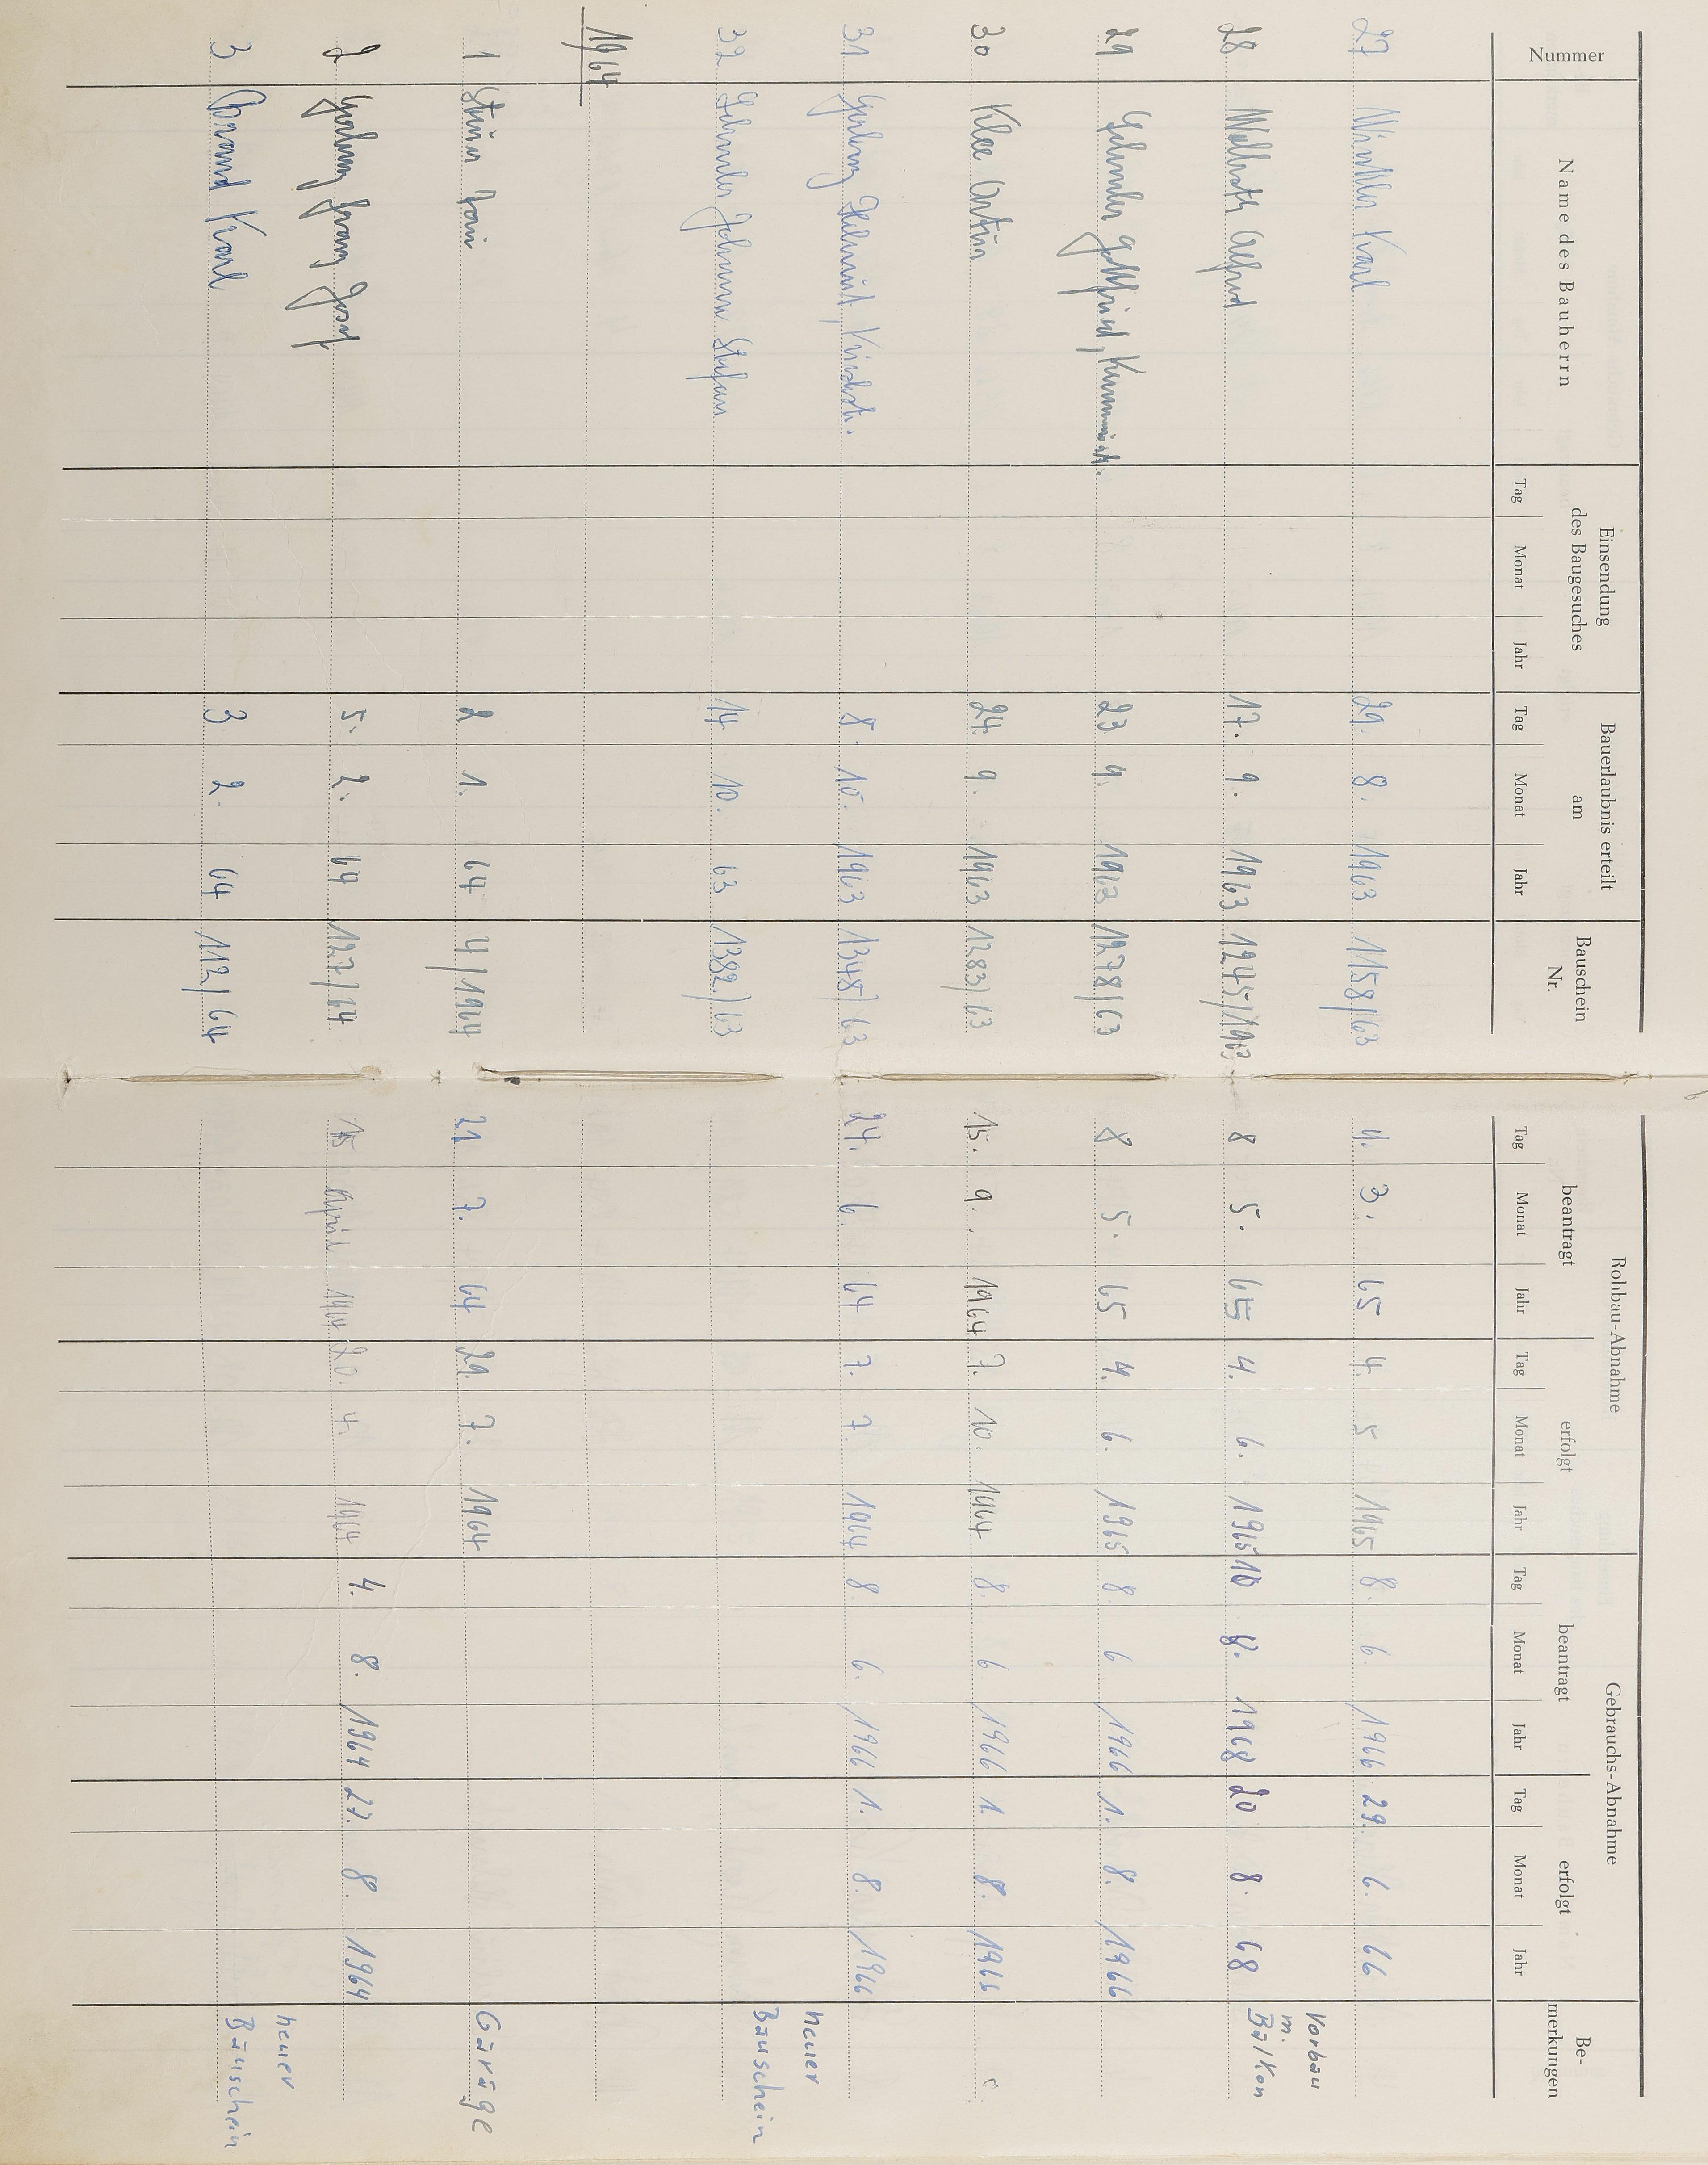 Nummer
Name des Bauherrn
Einsendung
des Baugesuches
Tag Monat Jahr
Bauerlaubnis erteilt
am
Tag Monat Jahr
Bauschein
Nr.
Rohbau-Abnahme
beantragt erfolgt
Tag Monat Jahr Tag Monat Jahr
Gebrauchs-Abnahme
beantragt erfolgt
Tag Monat Jahr Tag Monat Jahr
Be-
merkungen
27 Winkler Karl 29. 8. 1963 1158/63 4. 3. 65 4. 5 1965 8. 6. 1966 29. 6. 66
Vorbau
m.
28 Alfred 17. 9. 1963 1245/1963 8 5. 65 4. 6. 1965 10 8. 1968 20 8. 68 Balkon
29 Gottfried, 23 9. 1963 1278/63 8 5. 65 4. 6. 1965 8. 6 1966 1. 8. 1966
30 Klee Artur 24. 9. 1963 1283/63 15. 9. 1964 7. 10. 1964 8. 6 1966 1. 8. 1966
31 Helmut, 8. 10. 1963 1348/63 24. 6. 64 7. 7. 1964 8. 6. 1966 1. 8. 1966
neuer
32 Johann Stefan 14. 10. 63 1382/63 Bauschein
1964
1 2 1. 64 4/1964 21 7. 64 29. 7. 1964 Garage
2 Franz Josef 5. 2. 64 127/64 15 April 1964 20. 4. 1964 4. 8. 1964 27. 8. 1964
neuer
3 Karl 3 2. 64 112/64 Bauschein